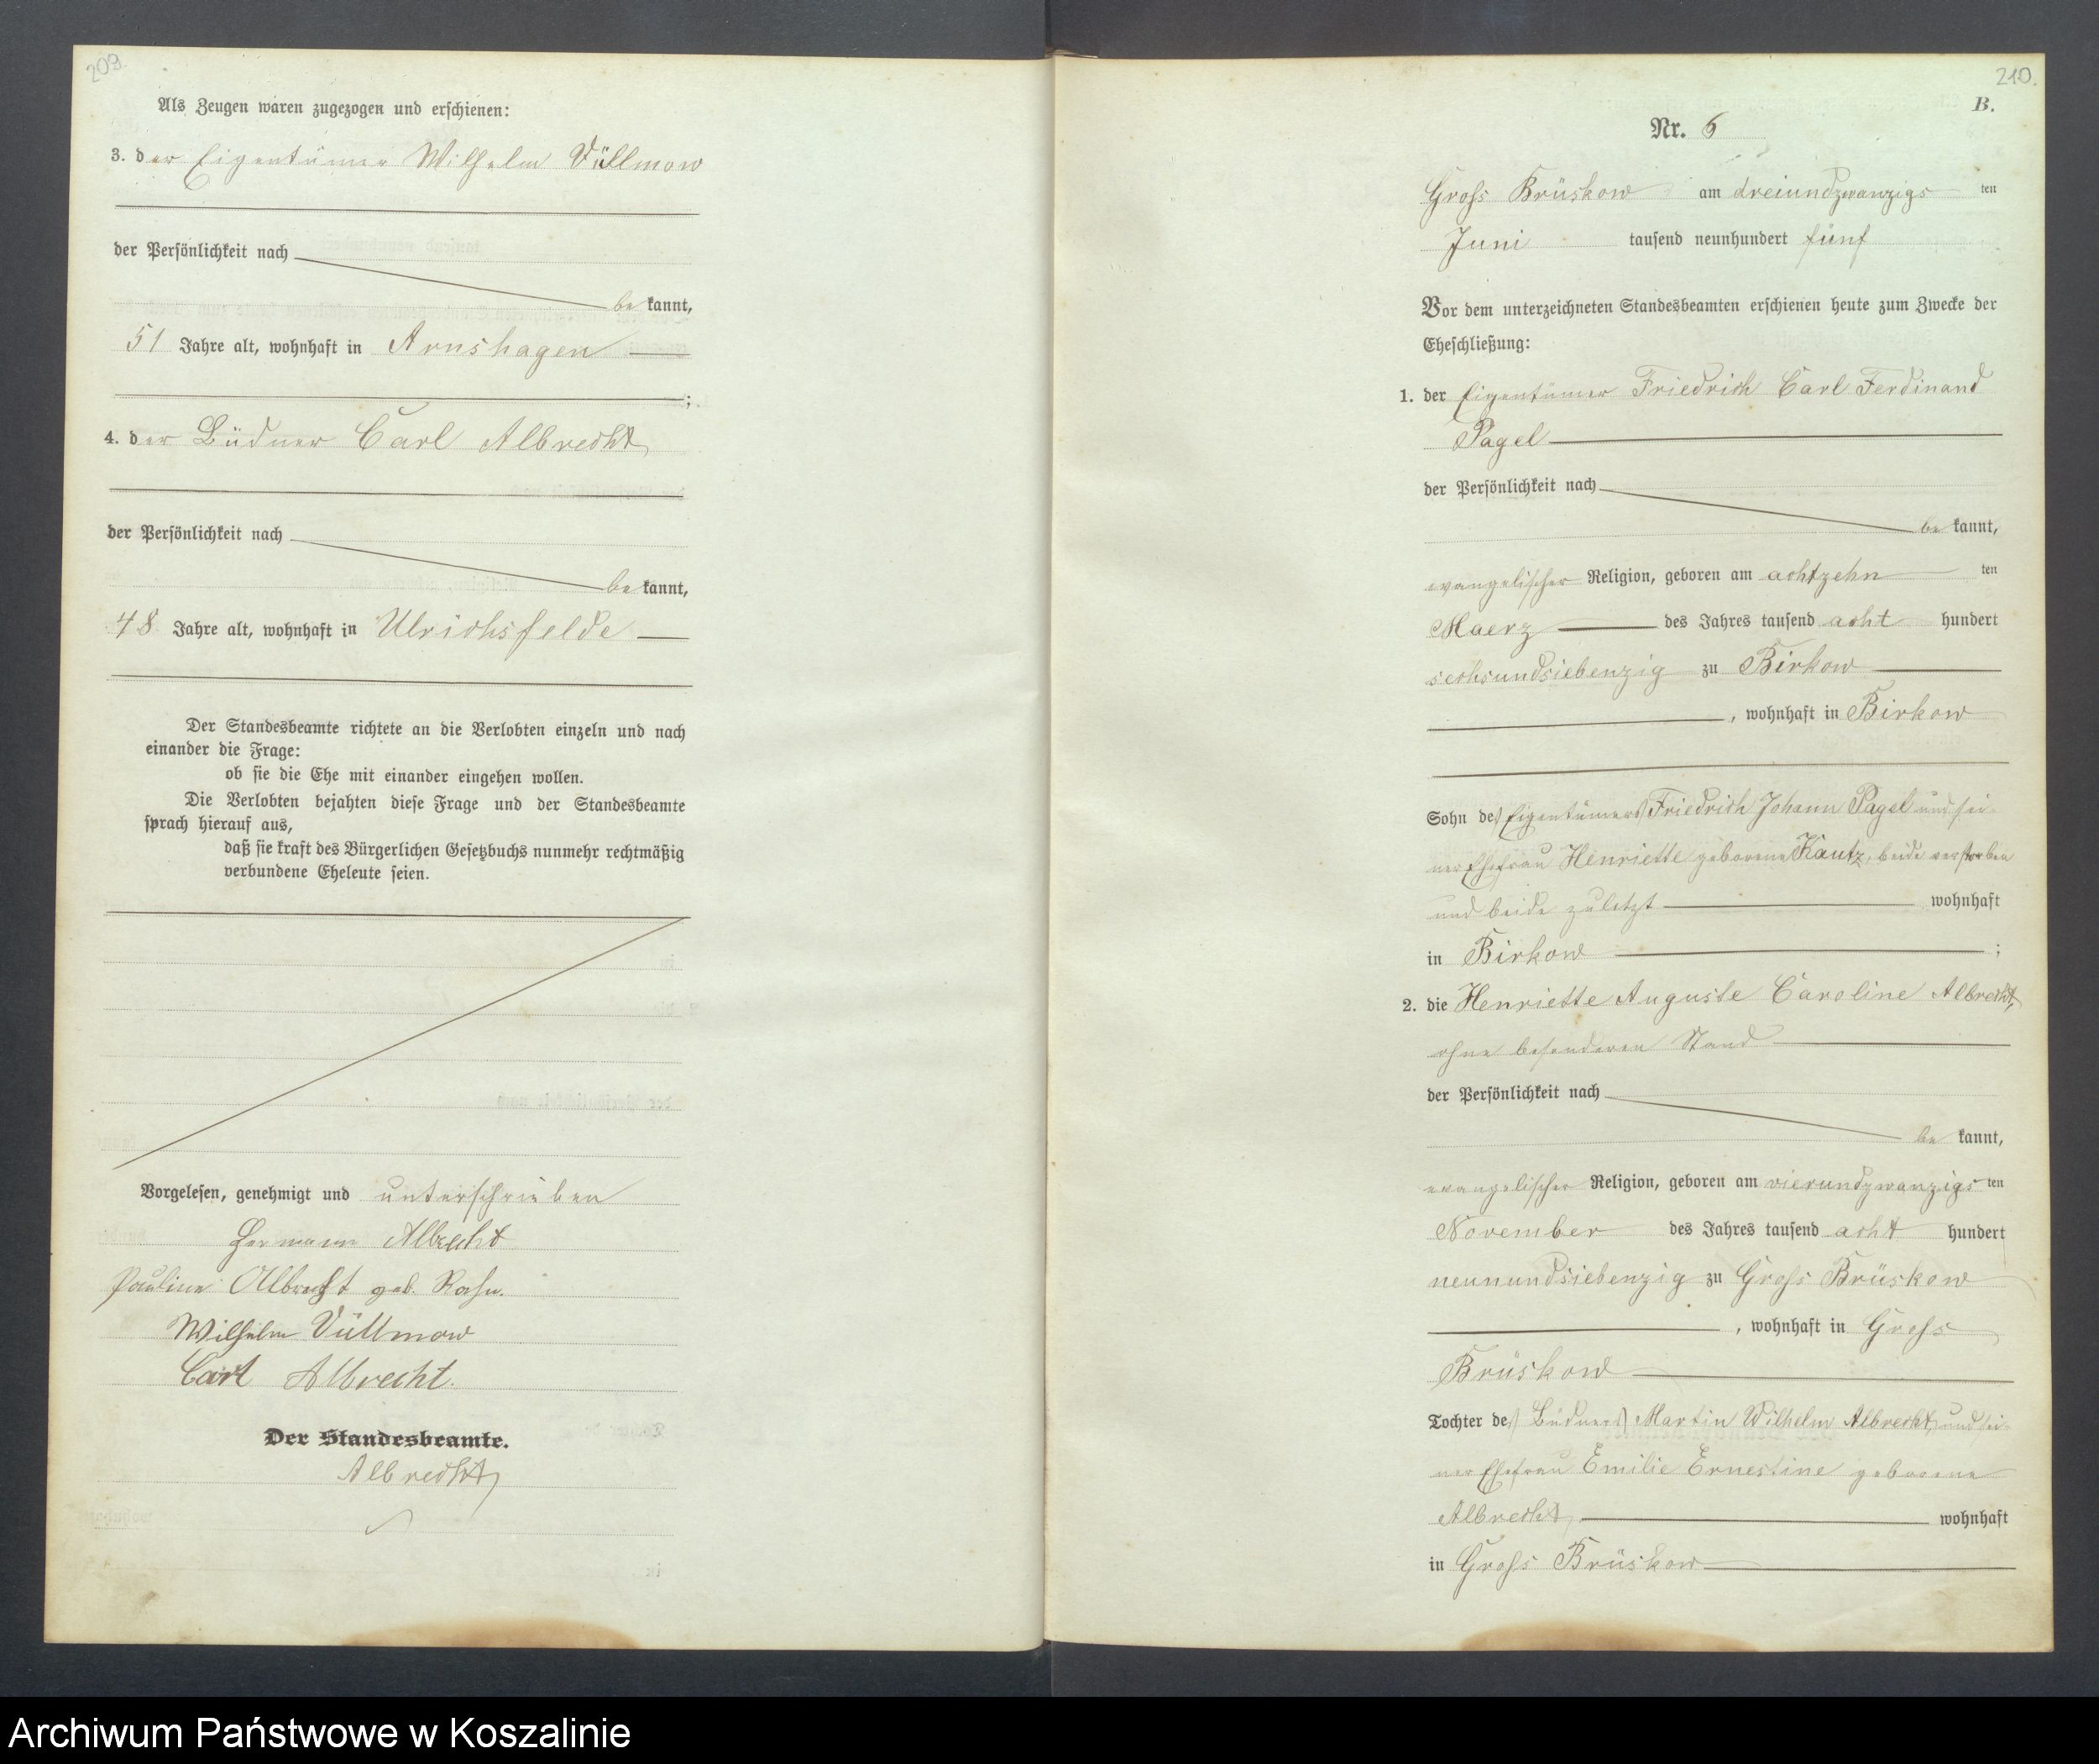 209.
Als Zeugen waren zugezogen und erschienen:
3. der Eigentümer Wilhelm Vüllmow
der Persönlichkeit nach
be kannt,
51 Jahre alt, wohnhaft in Arnshagen
;
4. der Büdner Carl Albrecht
der Persönlichkeit nach
be kannt,
48 Jahre alt, wohnhaft in Ulrichsfelde
Der Standesbeamte richtete an die Verlobten einzeln und nach
einander die Frage:
ob sie die Ehe mit einander eingehen wollen.
Die Verlobten bejahten diese Frage und der Standesbeamte
sprach hierauf aus,
daß sie kraft des Bürgerlichen Gesetzbuchs nunmehr rechtmäßig
verbundene Eheleute seien.
Vorgelesen, genehmigt und unterschrieben
Hermann Albrecht
Pauline Albrecht geb. Rahn.
Wilhelm Vüllmow
Carl Albrecht.
Der Standesbeamte.
Albrecht
210.
B.
Nr. 6
Groß Brüskow am dreiundzwanzigs ten
Juni tausend neunhundert fünf
Vor dem unterzeichneten Standesbeamten erschienen heute zum Zwecke der
Eheschließung:
1. der Eigentümer Friedrich Carl Ferdinand
Pagel
der Persönlichkeit nach
be kannt,
evangelischer Religion, geboren am achtzehn ten
Maerz des Jahres tausend acht hundert
sechsundsiebenzig zu Birkow
, wohnhaft in Birkow
Sohn des Eigentümers Friedrich Johann Pagel und sei-
ner Ehefrau Henriette geborene Kautz, beide verstorben
und beide zuletzt wohnhaft
in Birkow ;
2. die Henriette Auguste Caroline Albrecht,
ohne besonderen Stand
der Persönlichkeit nach
be kannt,
evangelischer Religion, geboren am vierundzwanzigs ten
November des Jahres tausend acht hundert
neunundsiebenzig zu Groß Brüskow
, wohnhaft in Groß
Brüskow
Tochter des Büdners Martin Wilhelm Albrecht und sei-
ner Ehefrau Emilie Ernestine geborene
Albrecht wohnhaft
in Groß Brüskow
Archiwum Państwowe w Koszalinie